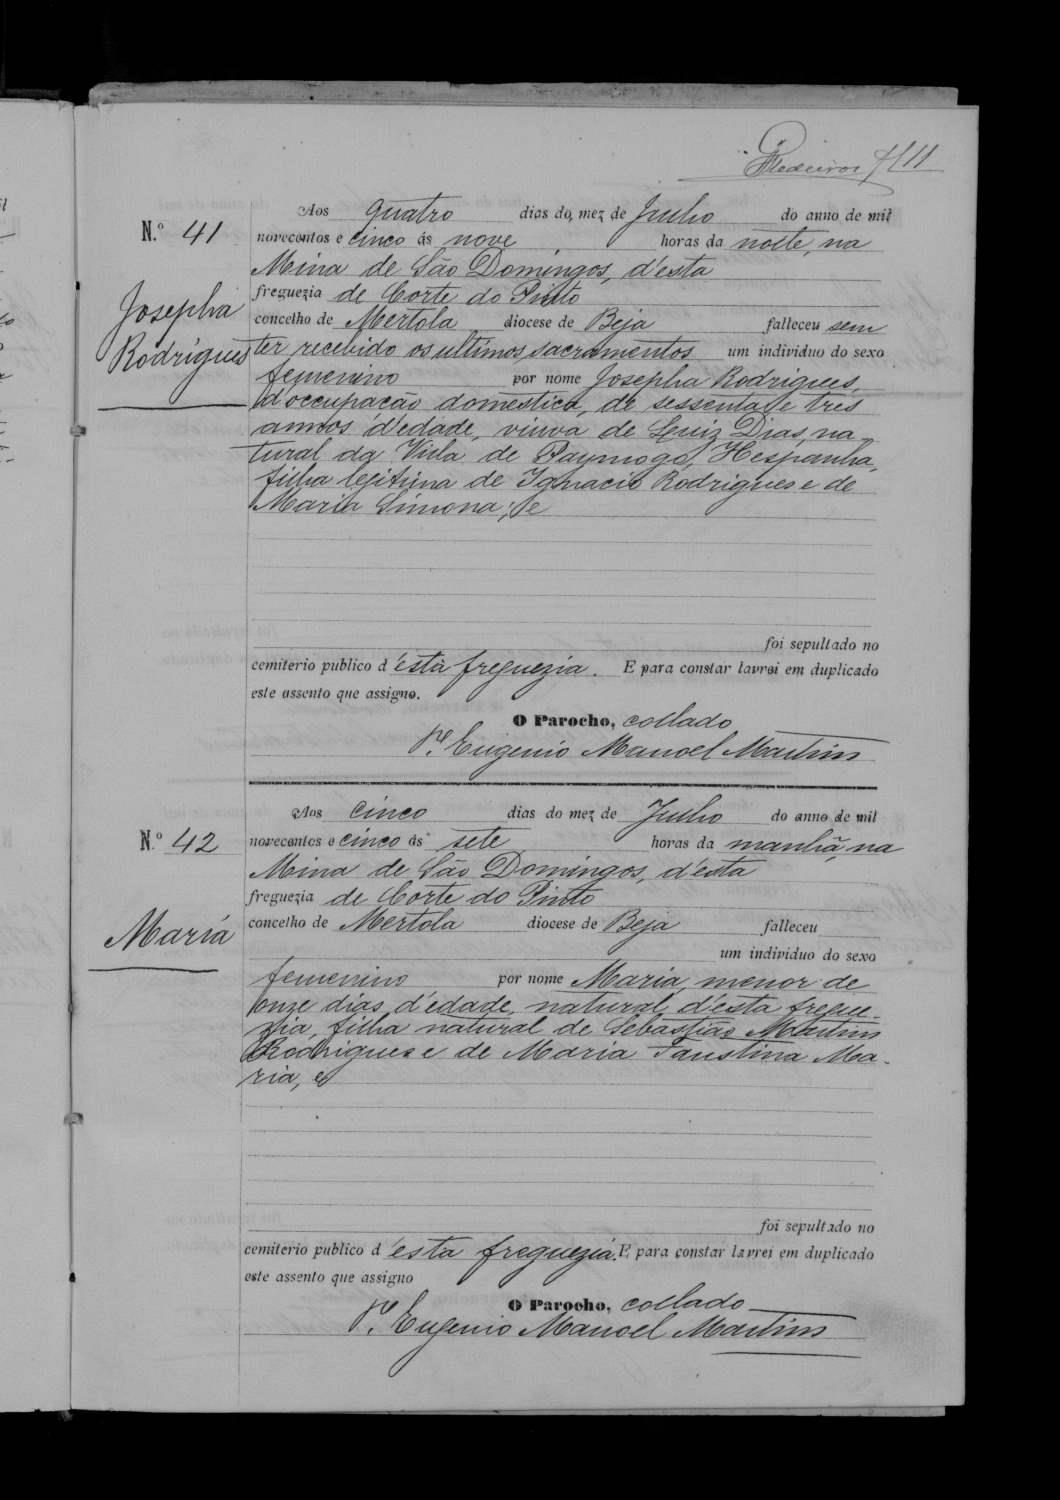 Medeiros 11
Aos quatro dias do mez de Julho do anno de mil
N.º 41
novecentos e cinco ás nove horas da noite, na
Mina de São Domingos, d'esta
freguezia de Corte do Pinto
Josepha
Rodrigues
concelho de Mertola diocese de Beja falleceu sem
ter recebido os ultimos sacramentos um individuo do sexo
femenino por nome Josepha Rodrigues,
d'occupação domestica, de sessenta e tres
annos d'edade, viuva de Luiz Dias, na-
tural da Villa de Paymogo, Hespanha,
filha legitima de Ignacio Rodrigues e de
Maria Simona; e
foi sepultado no
cemiterio publico d'esta freguezia. E para constar lavrei em duplicado
este assento que assigno.
O Parocho, collado
P.e Eugenio Manoel Martins
Aos cinco dias do mez de Julho do anno de mil
N.º 42
novecentos e cinco ás sete horas da manhã, na
Mina de São Domingos, d'esta
freguezia de Corte do Pinto
Maria
concelho de Mertola diocese de Beja falleceu
um individuo do sexo
femenino por nome Maria, menor de
onze dias d'edade, natural d'esta fregue-
zia, filha natural de Sebastião Martins
Rodrigues e de Maria Faustina Ma-
ria, e
foi sepultado no
cemiterio publico d'esta freguezia. E para constar lavrei em duplicado
este assento que assigno
O Parocho, collado
P.e Eugenio Manoel Martins